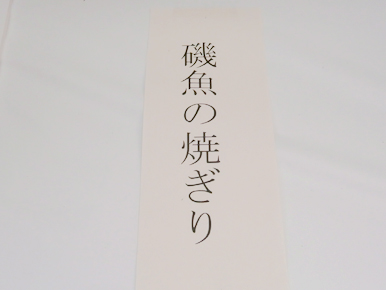 磯魚の焼ぎり